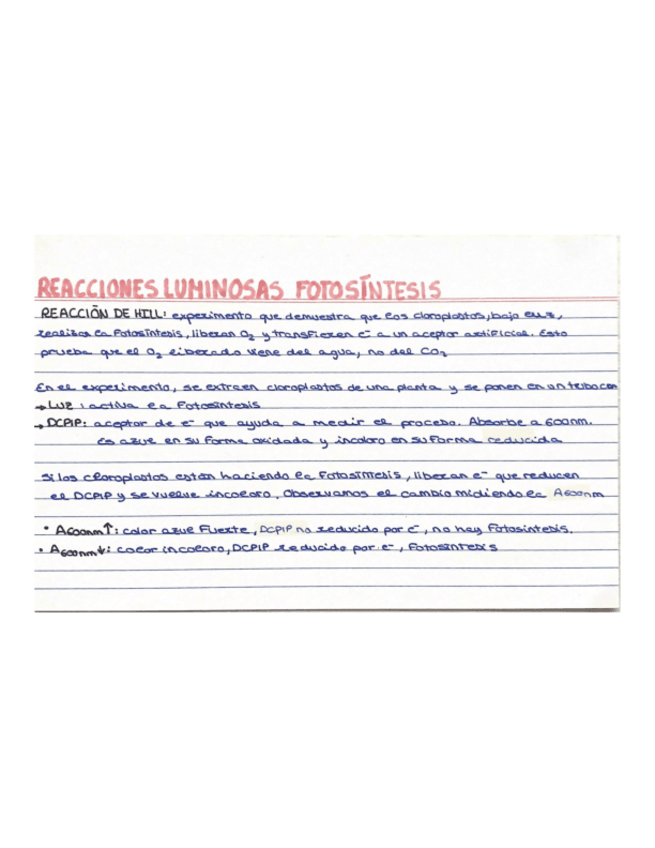 REACCIONES LUMINOSAS FOTOSÍNTESIS
REACCIÓN DE HILL: experimento que demuestra que los cloroplastos, bajo luz,
realizan la fotosíntesis, liberan O₂ y transfieren e⁻ a un aceptor artificial. Esto
prueba que el O₂ liberado viene del agua, no del CO₂
En el experimento, se extraen cloroplastos de una planta y se ponen en un tubo con
→ LUZ: activa la fotosíntesis
→ DCPIP: aceptor de e⁻ que ayuda a medir el proceso. Absorbe a 600nm.
es azul en su forma oxidada y incoloro en su forma reducida
Si los cloroplastos están haciendo la fotosíntesis, liberan e⁻ que reducen
el DCPIP y se vuelve incoloro. Observamos el cambio midiendo la A600nm
• A600nm↑: color azul fuerte, DCPIP no reducido por e⁻, no hay fotosíntesis.
• A600nm↓: color incoloro, DCPIP reducido por e⁻, fotosíntesis